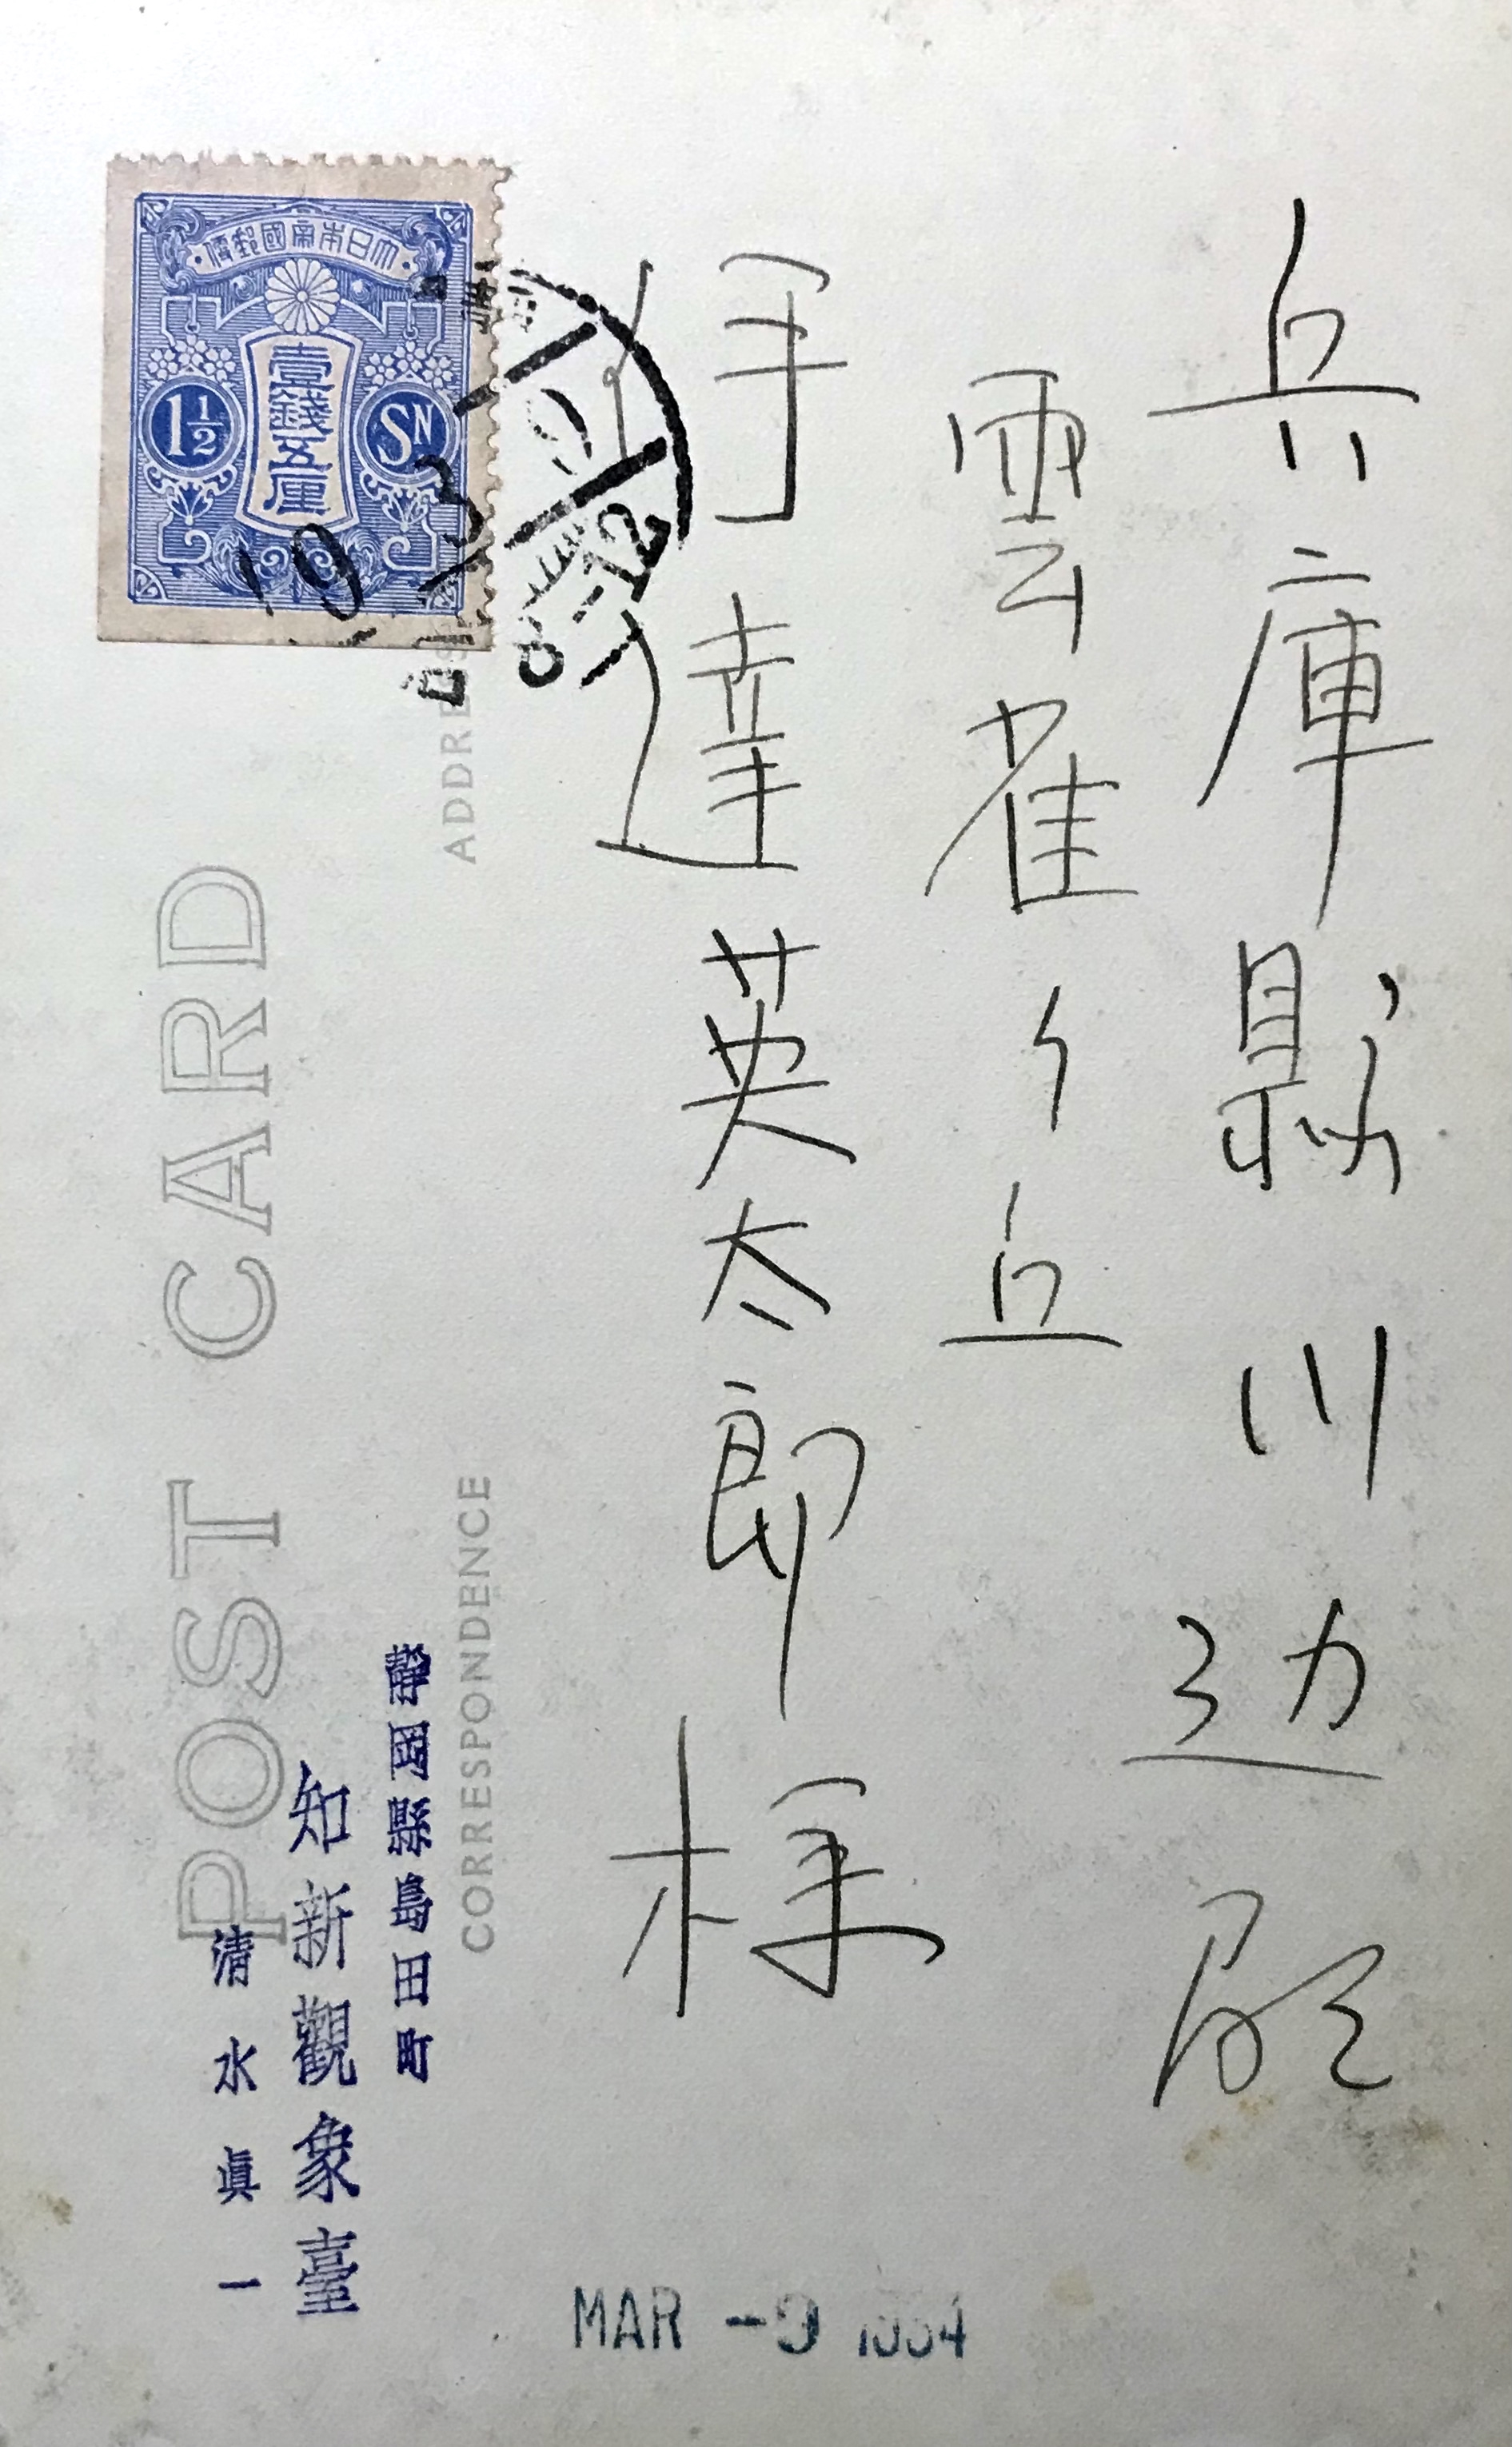 兵庫縣川辺局
雲雀ヶ丘
伊達英太郎様
大日本帝國郵便
壹錢五厘
1½ SN
9 3
9
8-12
POST CARD
ADDRE
CORRESPONDENCE
靜岡縣島田町
知新觀象臺
清水眞一
MAR -9 1934